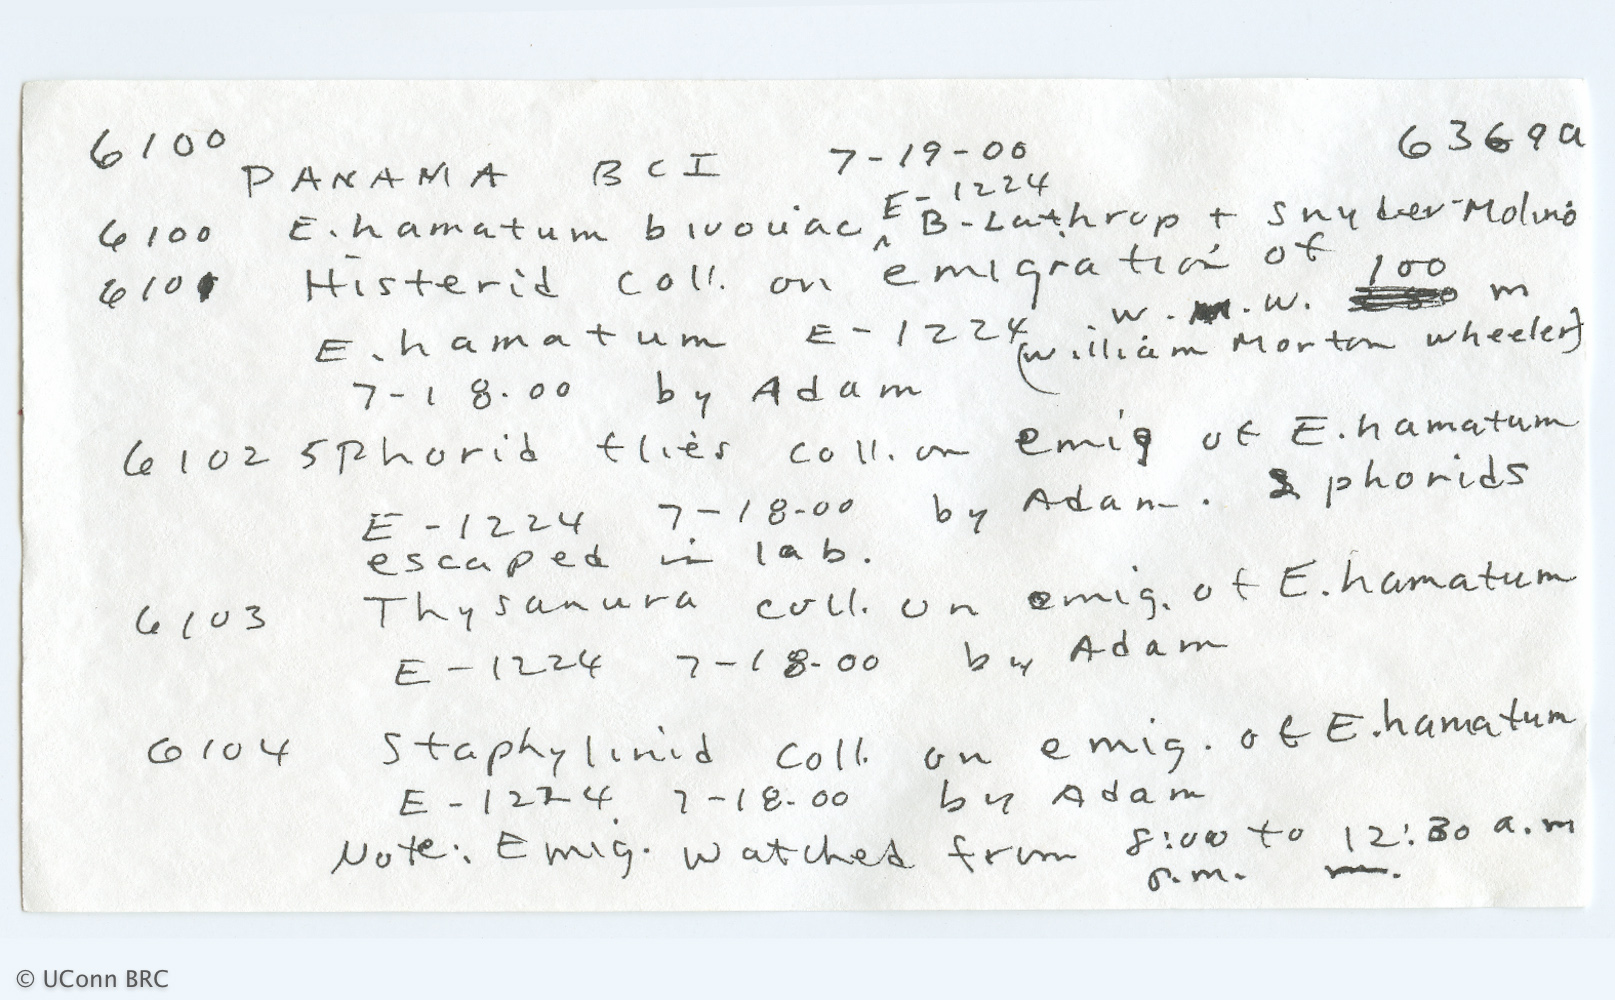 6100 6369a
PANAMA BCI 7-19-00
6100 E. hamatum bivouac E-1224 B-Lathrop + Snyder-Molino
6101 Histerid coll. on emigration of
E. hamatum E-1224 W. M. W. 100 m
(William Morton Wheeler)
7-18-00 by Adam
6102 5 Phorid flies coll. on emig of E. hamatum
E-1224 7-18-00 by Adam. 2 phorids
escaped in lab.
6103 Thysanura coll. on emig. of E. hamatum
E-1224 7-18-00 by Adam
6104 Staphylinid coll. on emig. of E. hamatum
E-1224 7-18-00 by Adam
Note: Emig. watched from 8:00 to 12:30 a.m
p.m.
© UConn BRC